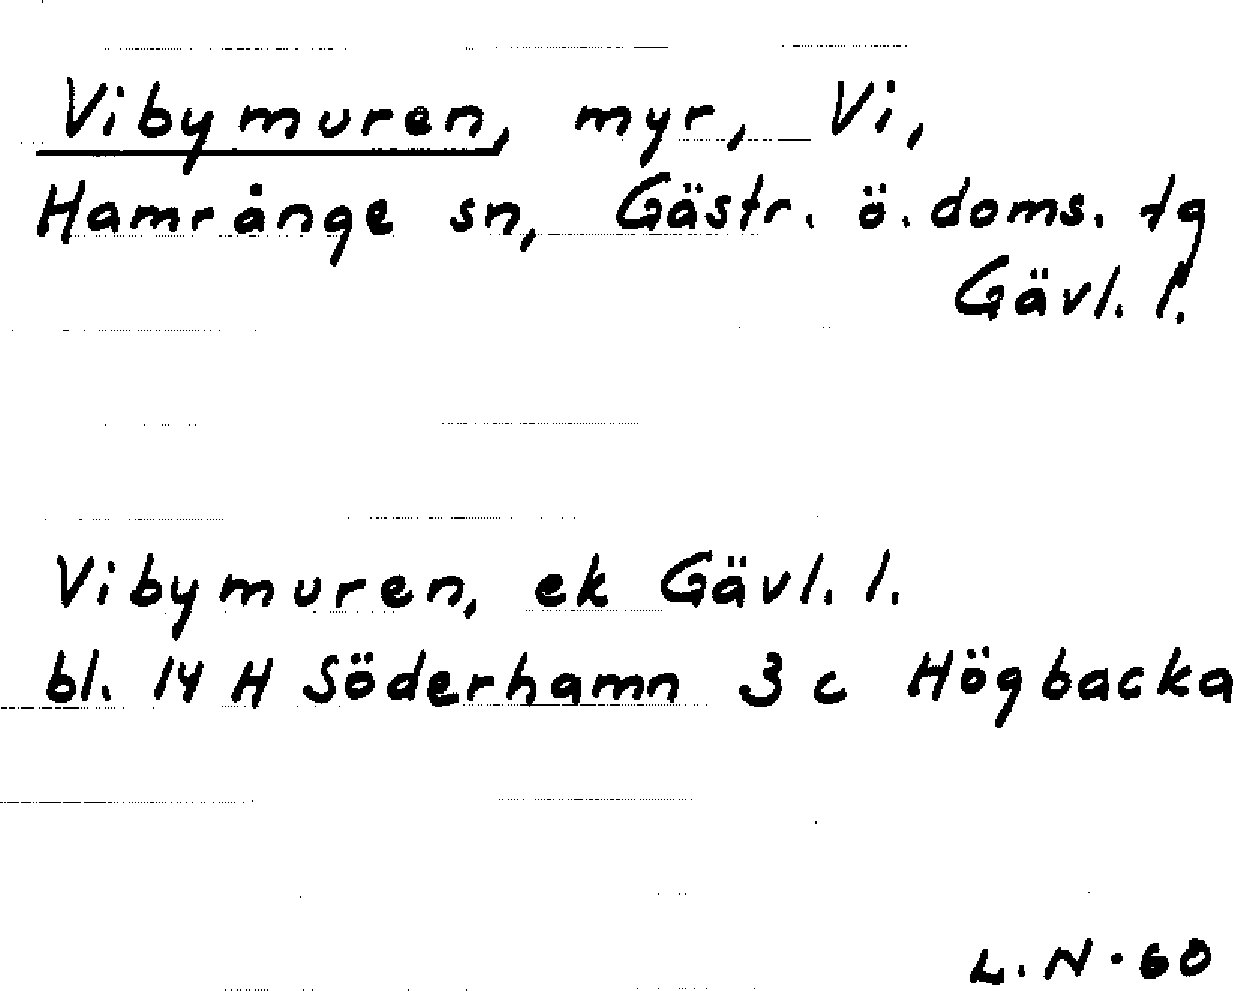 Vibymuren, myr, Vi,
Hamrånge sn, Gästr. ö. doms. tg
Gävl. l.
Vibymuren, ek Gävl. l.
bl. 14 H Söderhamn 3 c Högbacka
L. N. 60